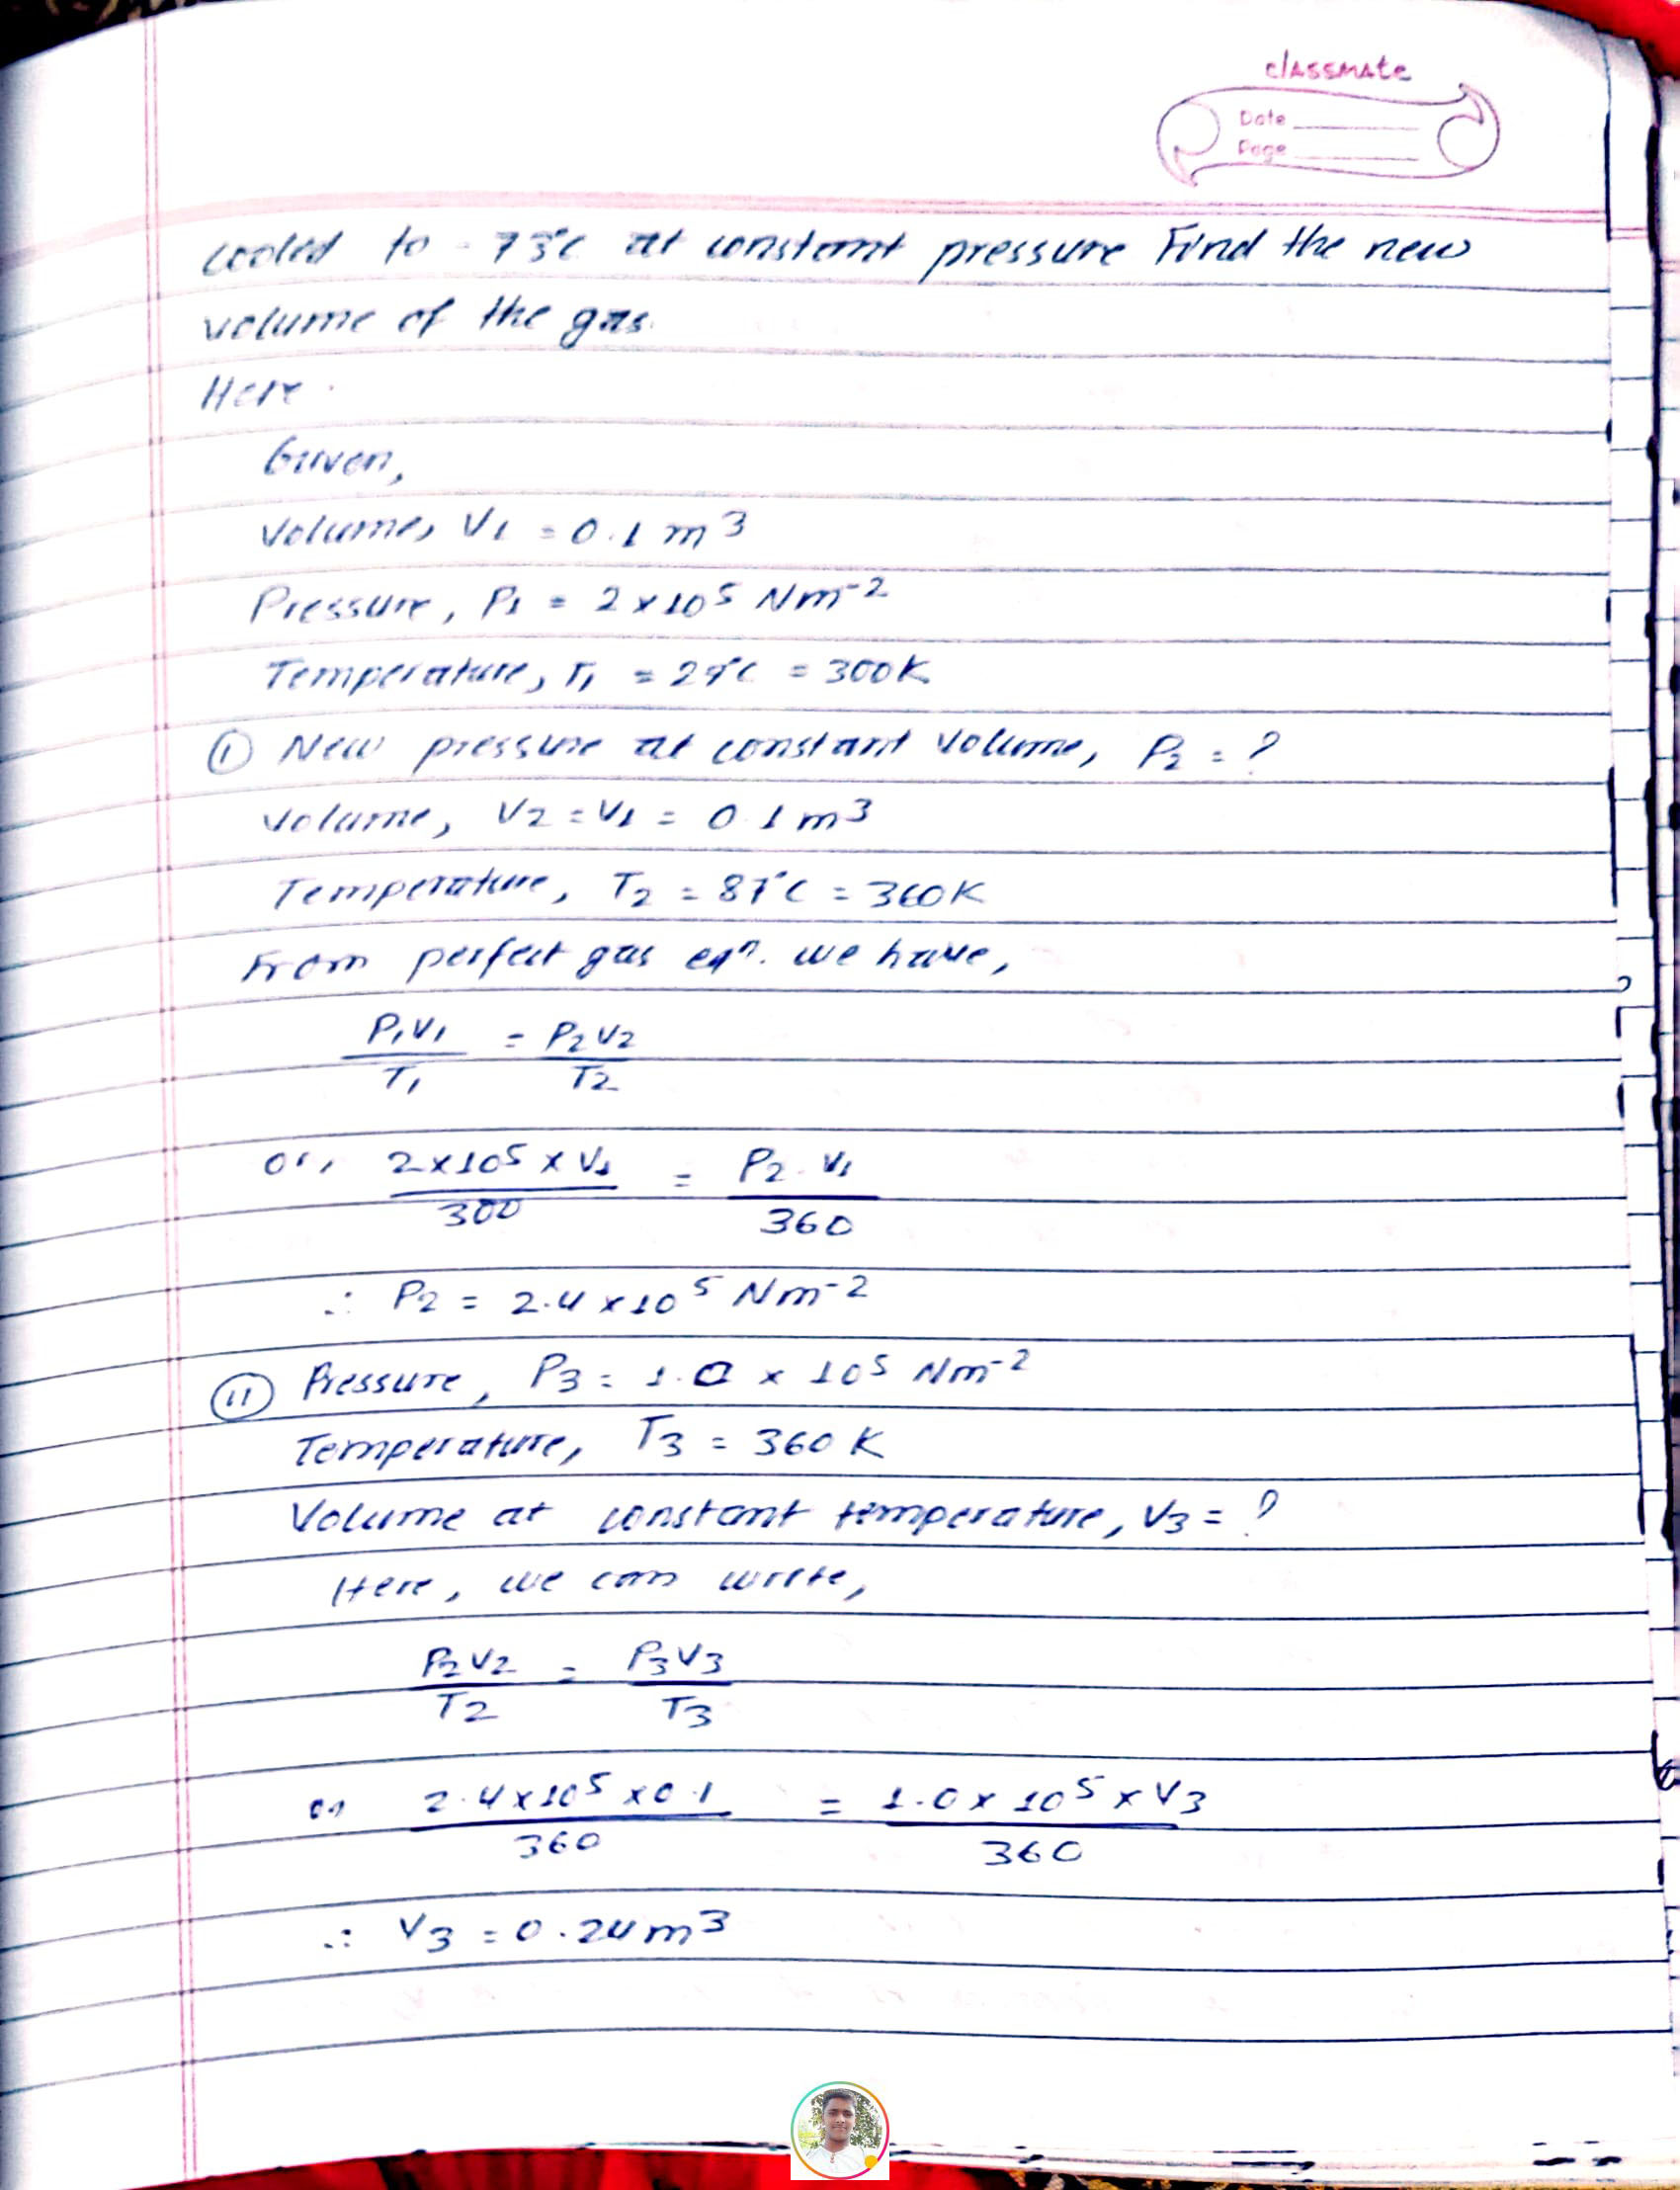 classmate
Date
Page
cooled to -73°C at constant pressure Find the new
volume of the gas.
Here
Given,
Volume, V1 = 0.1 m3
Pressure, P1 = 2 x 10 5 Nm-2
Temperature, T1 = 27°C = 300K
(i) New pressure at constant volume, P2 = ?
Volume, V2 = V1 = 0.1 m3
Temperature, T2 = 87°C = 360K
From perfect gas eqn. we have,
P1V1/T1 = P2V2/T2
or, 2x105 x V1/300 = P2 . V1/360
∴ P2 = 2.4 x 10 5 Nm-2
(ii) Pressure, P3 = 1.0 x 105 Nm-2
Temperature, T3 = 360 K
Volume at constant temperature, V3 = ?
Here, we can write,
P2V2/T2 = P3V3/T3
or 2.4x105 x0.1/360 = 1.0 x 105 x V3/360
∴ V3 = 0.24m3